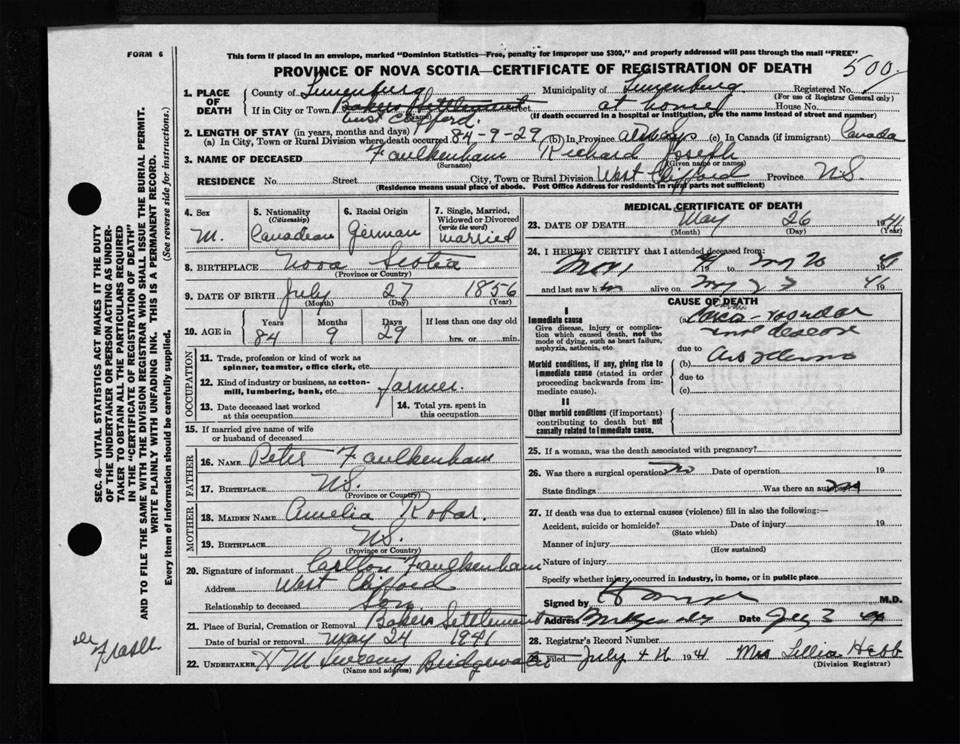 FORM 6
This form if placed in an envelope, marked "Dominion Statistics—Free, penalty for improper use $300," and properly addressed will pass through the mail "FREE"
PROVINCE OF NOVA SCOTIA—CERTIFICATE OF REGISTRATION OF DEATH
500
1. PLACE OF DEATH
County of Lunenburg Municipality of Lunenburg Registered No.
(For use of Registrar General only)
If in City or Town Bakers Settlement Street at home House No.
(Name) (If death occurred in a hospital or institution, give the name instead of street and number)
West Clifford.
2. LENGTH OF STAY (in years, months and days)
(a) In City, Town or Rural Division where death occurred 84-9-29 (b) In Province always (c) In Canada (if immigrant) Canada
3. NAME OF DECEASED Faulkenham Richard Joseph
(Surname) (Given name or names)
RESIDENCE No. Street City, Town or Rural Division West Clifford Province N.S.
(Residence means usual place of abode. Post Office Address for residents in rural parts not sufficient)
4. Sex M.
5. Nationality (Citizenship) Canadian
6. Racial Origin German
7. Single, Married, Widowed or Divorced (write the word) married
8. BIRTHPLACE Nova Scotia
(Province or Country)
9. DATE OF BIRTH July 27 1856
(Month) (Day) (Year)
10. AGE in Years Months Days If less than one day old
84 9 29 hrs. or min.
OCCUPATION
11. Trade, profession or kind of work as spinner, teamster, office clerk, etc.
12. Kind of industry or business, as cotton-mill, lumbering, bank, etc. farmer.
13. Date deceased last worked at this occupation
14. Total yrs. spent in this occupation
15. If married give name of wife or husband of deceased
FATHER
16. NAME Peter Faulkenham
17. BIRTHPLACE N.S.
(Province or Country)
MOTHER
18. MAIDEN NAME Amelia Robar.
19. BIRTHPLACE N.S.
(Province or Country)
20. Signature of informant Carlton Faulkenham
Address West Clifford
Relationship to deceased Son.
21. Place of Burial, Cremation or Removal Bakers Settlement
Date of burial or removal May 24 1941
22. UNDERTAKER Bridgewater
(Name and address)
MEDICAL CERTIFICATE OF DEATH
23. DATE OF DEATH May 26 1941
(Month) (Day) (Year)
24. I HEREBY CERTIFY that I attended deceased from:
19 to 19
and last saw h alive on 19
CAUSE OF DEATH
I
Immediate cause
Give disease, injury or complication which caused death, not the mode of dying, such as heart failure, asphyxia, asthenia, etc.
due to
Morbid conditions, if any, giving rise to immediate cause (stated in order proceeding backwards from immediate cause).
(b)
due to
(c)
II
Other morbid conditions (if important) contributing to death but not causally related to immediate cause.
25. If a woman, was the death associated with pregnancy?
26. Was there a surgical operation no Date of operation 19
State findings Was there an autopsy no
27. If death was due to external causes (violence) fill in also the following:—
Accident, suicide or homicide? Date of injury 19
(State which)
Manner of injury
(How sustained)
Nature of injury
Specify whether injury occurred in industry, in home, or in public place
Signed by M.D.
Address Date July 3
28. Registrar's Record Number
Filed July 4th 1941 Mrs Lillia Hebb
(Division Registrar)
SEC. 46—VITAL STATISTICS ACT MAKES IT THE DUTY
OF THE UNDERTAKER OR PERSON ACTING AS UNDER-
TAKER TO OBTAIN ALL THE PARTICULARS REQUIRED
IN THE "CERTIFICATE OF REGISTRATION OF DEATH"
AND TO FILE THE SAME WITH THE DIVISION REGISTRAR WHO SHALL ISSUE THE BURIAL PERMIT.
WRITE PLAINLY WITH UNFADING INK. THIS IS A PERMANENT RECORD.
Every item of information should be carefully supplied. (See reverse side for instructions.)